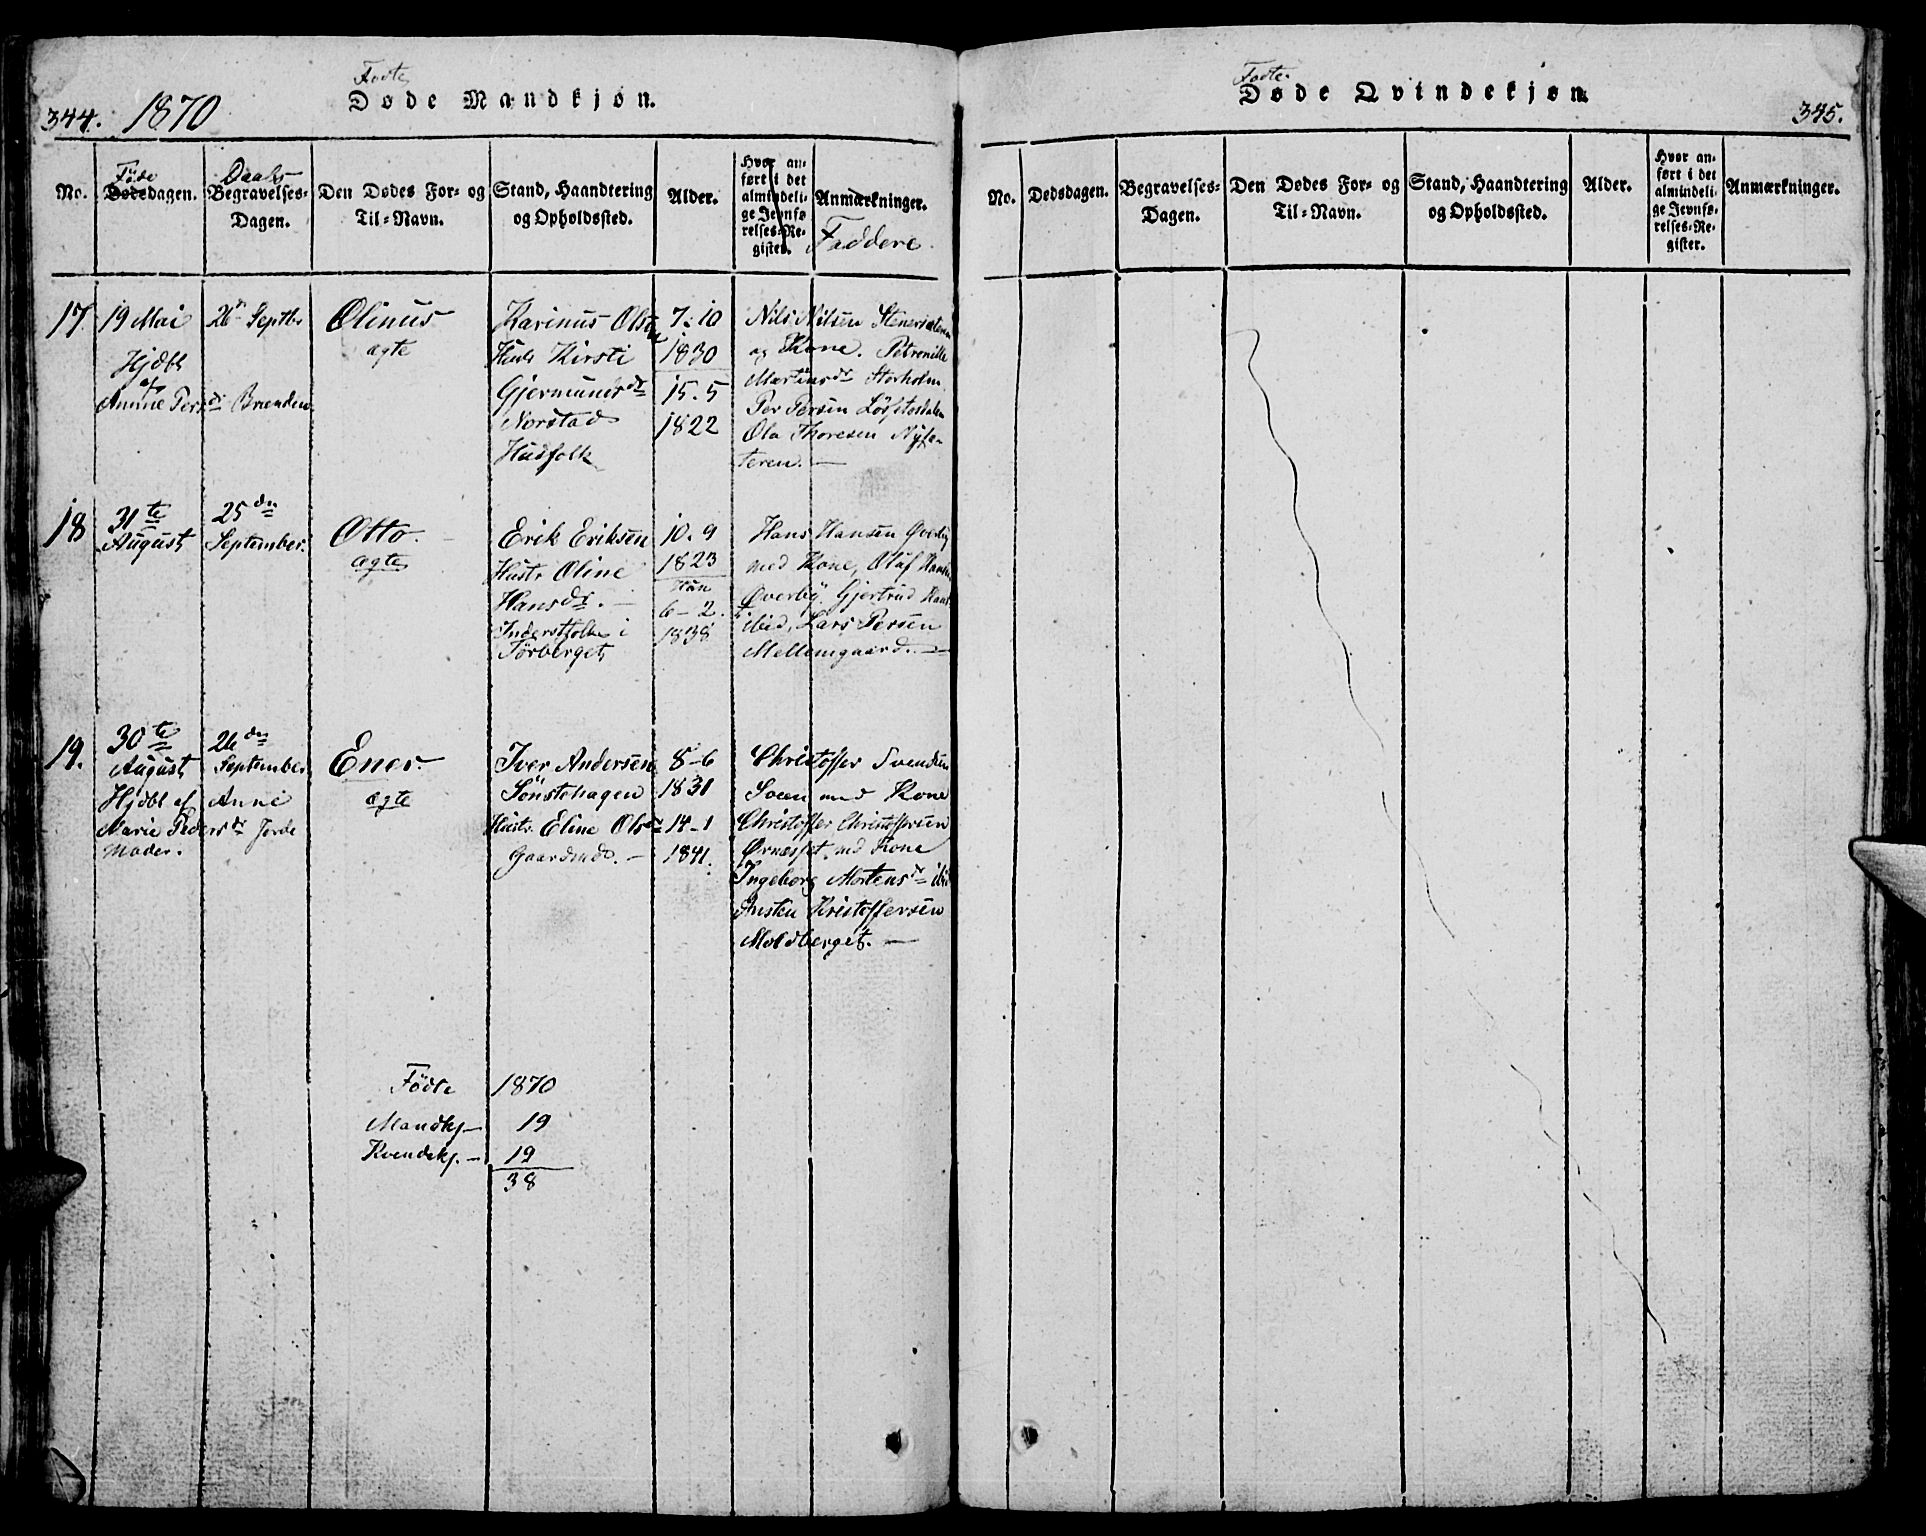 344. 1870
Fødte
Døde Mandkjøn.
No.
Føde
Dødsdagen.
Daabs
Begravelses-
Dagen.
Den Dødes For- og
Til-Navn.
Stand, Haandtering
og Opholdssted.
Alder.
Hvor an-
ført i det
almindeli-
ge Jevnfø-
relses-Re-
gister.
Anmærkninger.
Faddere.
17
19 Mai
Hjdbt
af
Anne Persdr Brænden
26 Septbr
Olinus
ægte
Karinus Olsen
Hust Kirsti
Gjermundsdr
Norstad
Husfolk
7. 10
1830
15. 5
1822
Nils Nilsen
og Kone. Petronille
Martinsdr Storholm
Per Persen
Ola Thoresen Nysæ-
teren. —
18
31te
August
25de
September.
Otto.
ægte
Erik Eriksen
Hustr Oline
Hansdr. —
Inderstfolk i
Førberget
10. 9
1823
Hun
6 - 2.
1838
Hans Hansen Øverby
med Kone, Olaf Hansen
Øverby. Gjertrud
ibid, Lars Persen
Mellemgaard. —
19.
30te
August
Hjdbt af Anne
Marie Pedersdr Jorde
Moder.
26de
September
Ener.
ægte
Iver Andersen
Sønstehagen
Hustr. Eline Olsdr
Gaardmd. —
8-6
1831
14-1
1841.
Christoffer Svendsen
Soen med Kone
Christoffer Christoffersen
Ørnæsset, md Kone
Ingeborg Mortensdr ibid
Østen Kristoffersen
Moldberget. —
Födte 1870
Mandkj — 19
Kvendekj. — 19
38
Fødte
Døde Qvindekjøn.
345.
No.
Dødsdagen.
Begravelses-
Dagen.
Den Dødes For- og
Til-Navn.
Stand, Haandtering
og Opholdssted.
Alder.
Hvor an-
ført i det
almindeli-
ge Jevnfø-
relses-Re-
gister.
Anmærkninger.